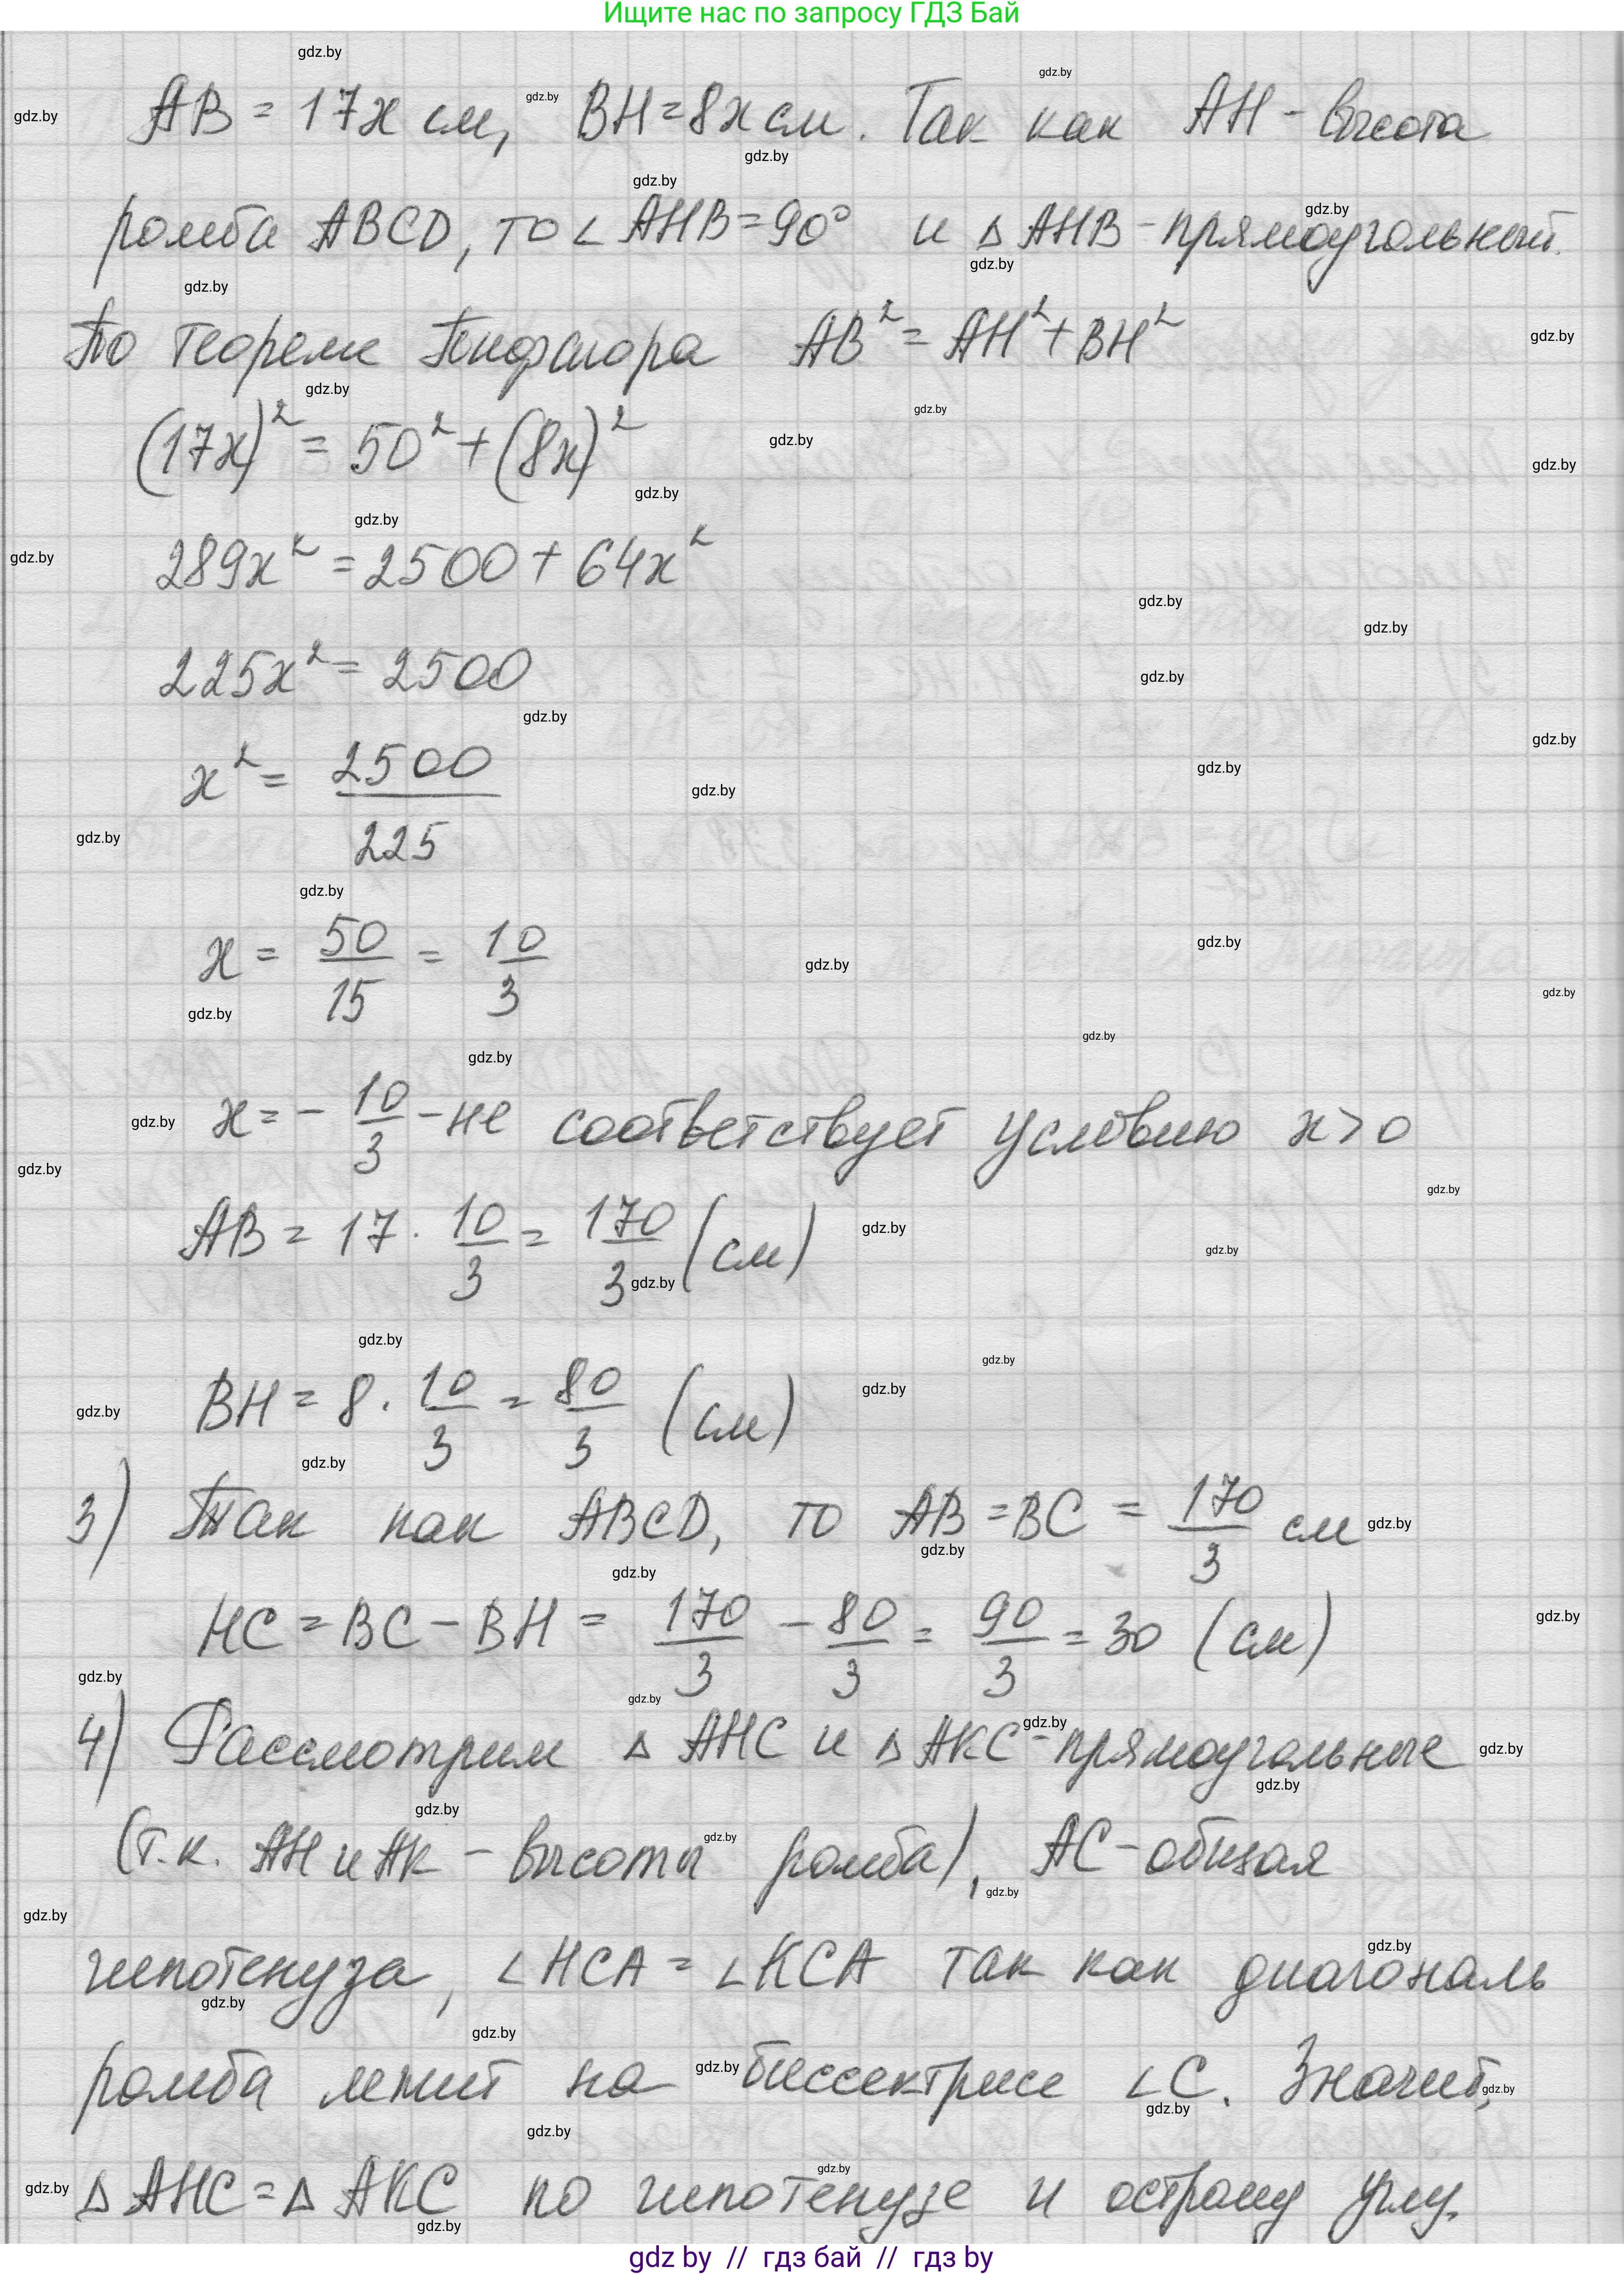 Ищите нас по запросу ГДЗ Бай
AB = 17x см, BH = 8x см. Так как AH - высота
ромба ABCD, то ∠AHB = 90° и △AHB - прямоугольный.
По теореме Пифагора AB² = AH² + BH²
(17x)² = 50² + (8x)²
289x² = 2500 + 64x²
225x² = 2500
x² = 2500/225
x = 50/15 = 10/3
x = -10/3 - не соответствует условию x > 0
AB = 17 · 10/3 = 170/3 (см)
BH = 8 · 10/3 = 80/3 (см)
3) Так как ABCD, то AB = BC = 170/3 см
HC = BC - BH = 170/3 - 80/3 = 90/3 = 30 (см)
4) Рассмотрим △ AHC и △ AKC - прямоугольные
(т.к. AH и AK - высоты ромба), AC - общая
гипотенуза, ∠HCA = ∠KCA так как диагональ
ромба лежит на биссектрисе ∠C. Значит,
△ AHC = △ AKC по гипотенузе и острому углу.
gdz by // гдз бай // гдз by